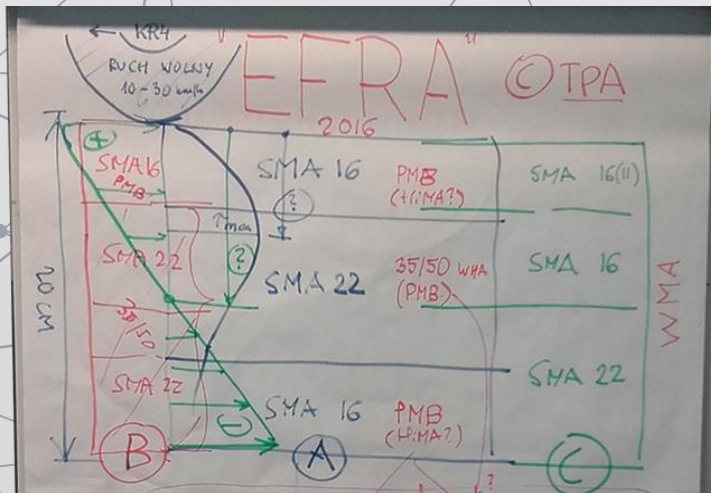 ← KR4
RUCH WOLNY
10-30 km/h
"EFRA"
© TPA
2016
+
SMA 16
PMB
SMA 22
35/50
SMA 22
B
20 CM
SMA 16
?
τmax
?
SMA 22
SMA 16
A
PMB
(HiMA?)
35/50 WMA
(PMB)
PMB
(HiMA?)
?
SMA 16(11)
SMA 16
SMA 22
C
WMA